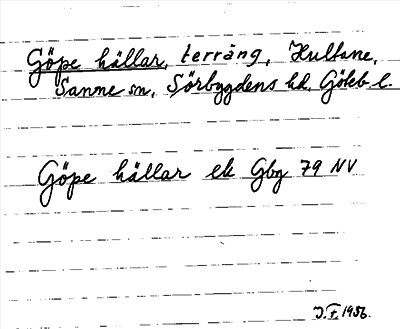 Göpe hällar, terräng, Hultane,
Sanne sn, Sörbygdens hd, Göteb l.
Göpe hällar ek Gbg 79 NV
1956.